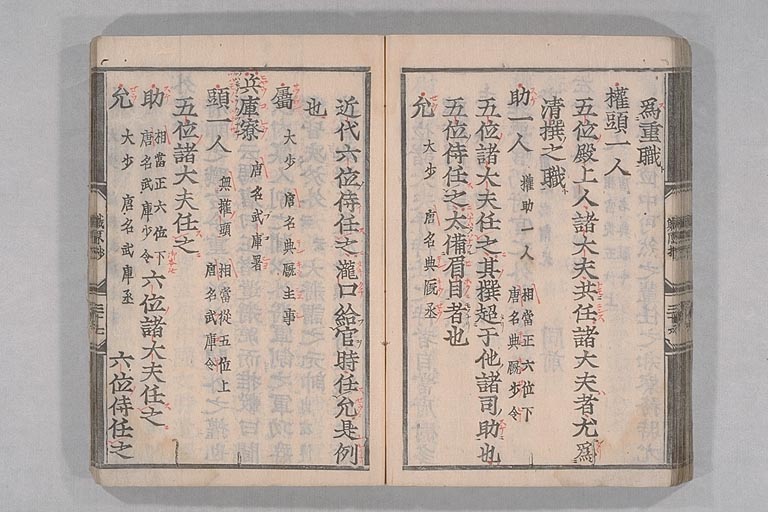 爲重職
權頭一人
五位殿上人諸大夫共任諸大夫者尤爲
清撰之職
助一人 權助一人 相當正六位下 唐名典厩少令
五位諸大夫任之其撰超于他諸司助也
五位侍任之太備眉目者也
允 大少 唐名典厩丞
近代六位侍任之瀧口給官時任允是例
也
屬 大少 唐名典厩主事
兵庫寮 唐名武庫署
頭一人 無權頭 相當從五位上 唐名武庫令
五位諸大夫任之
助 相當正六位下 唐名武庫少令 六位諸大夫任之
允 大少 唐名武庫丞 六位侍任之